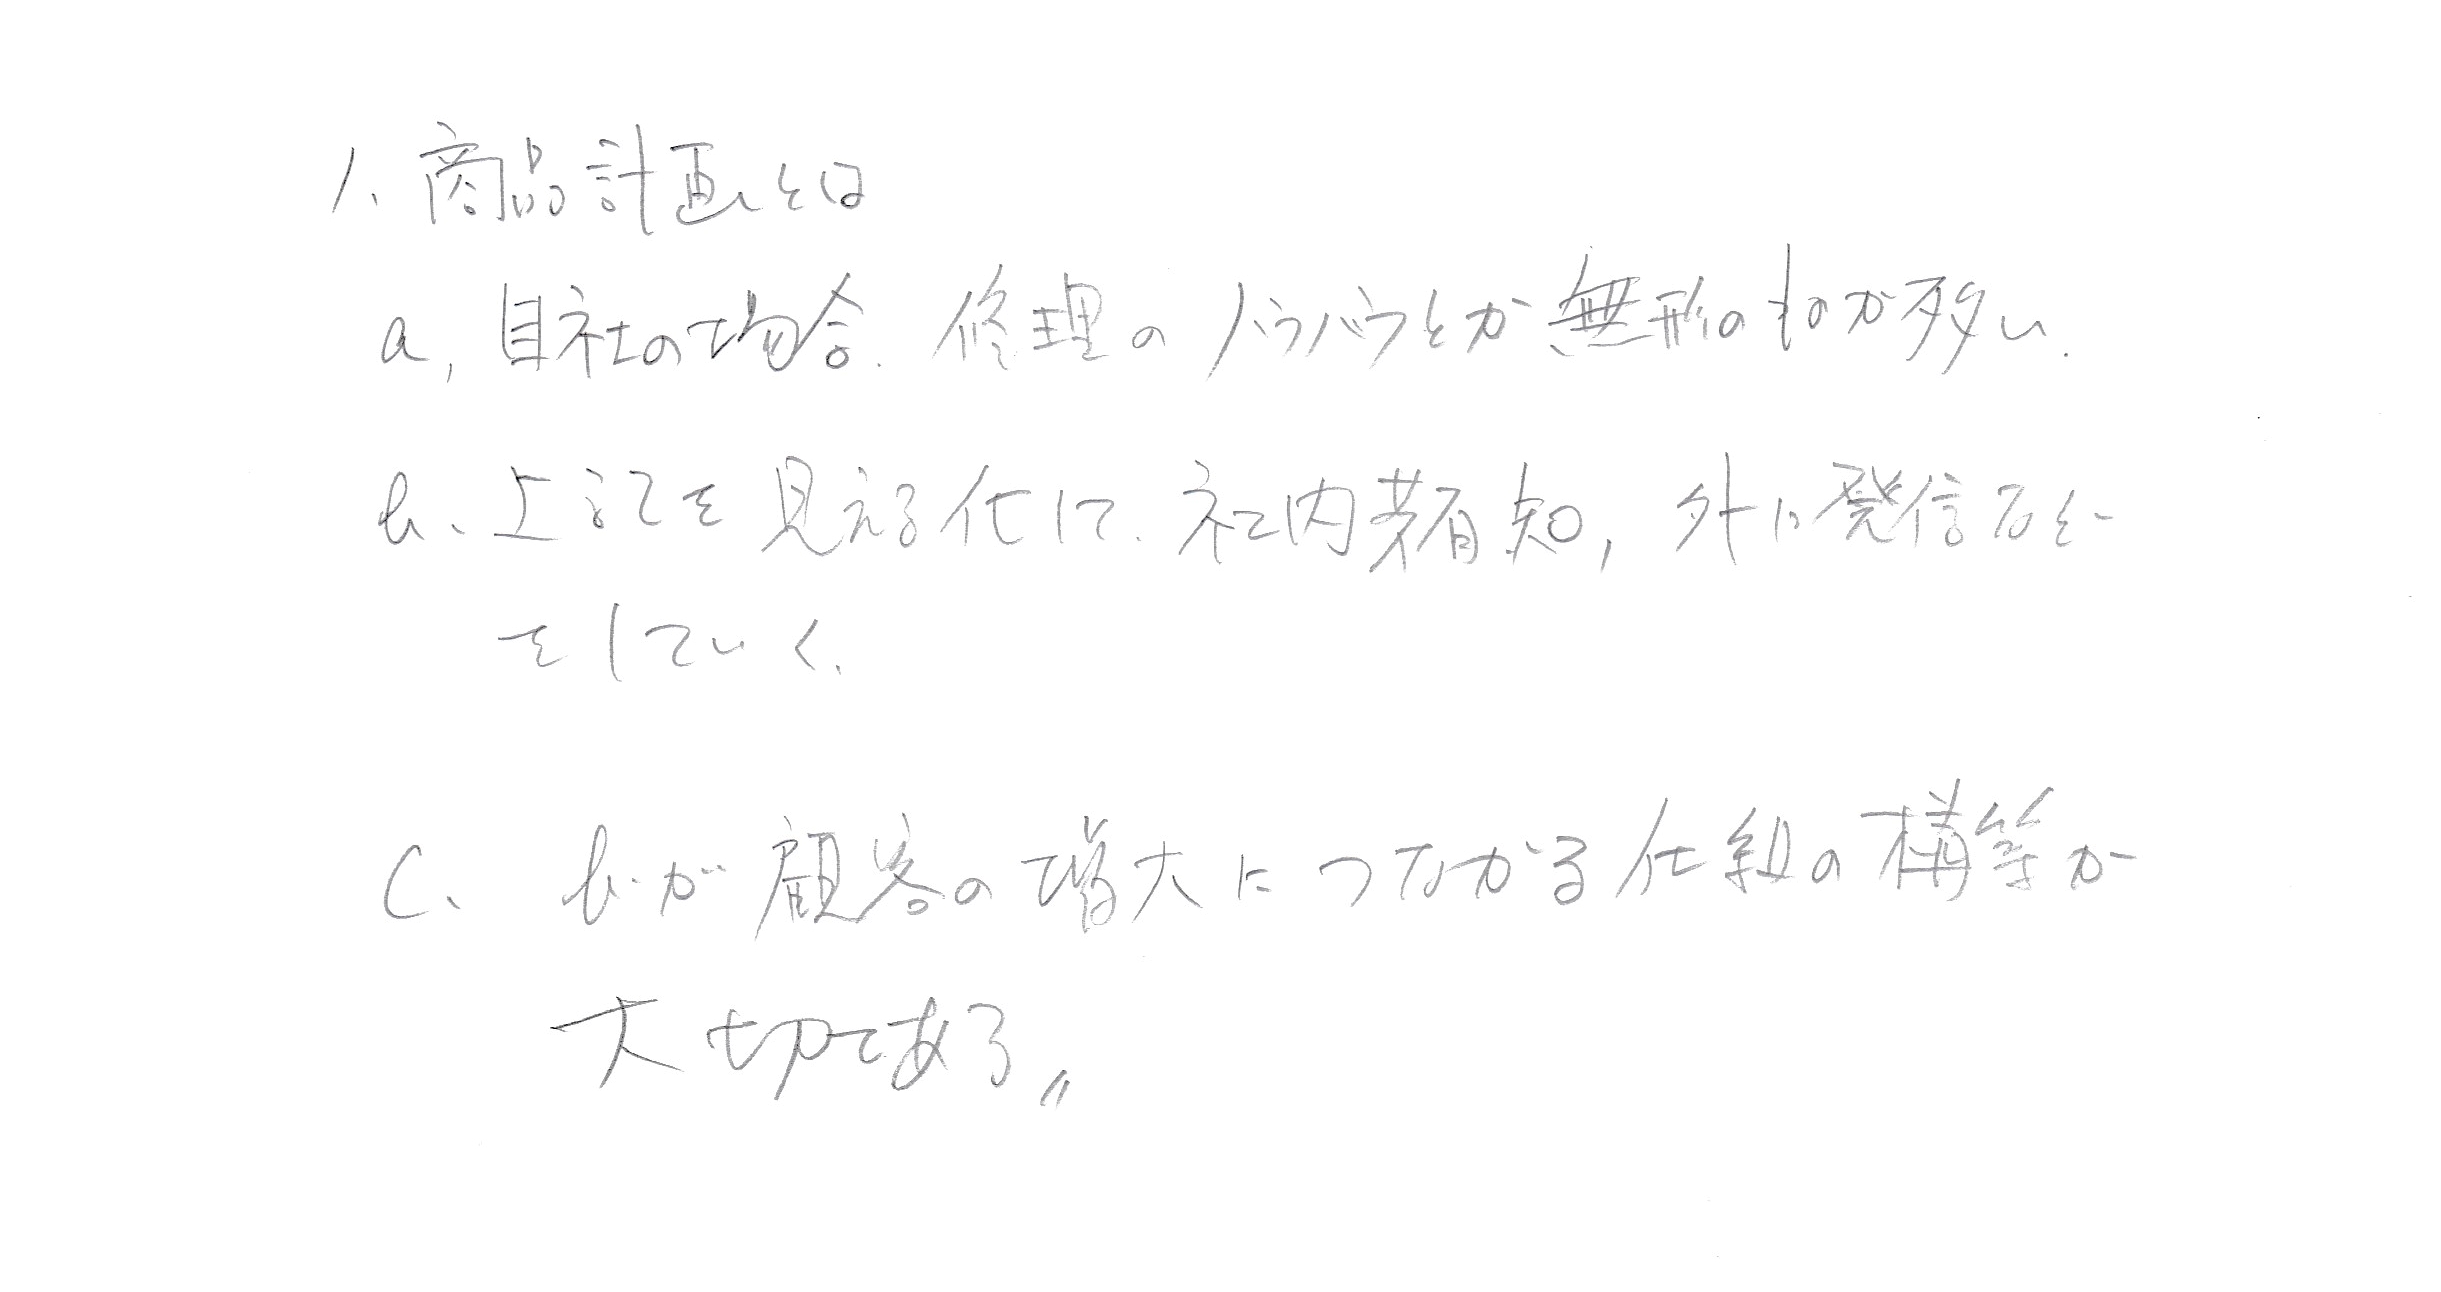 1、商品計画とは
a, 自社の場合、修理のノウハウとか無形のものが多い。
b、上記を見える化して、社内 知, 外に発信など
をしていく。
C、b.が顧客の増大につながる仕組の構築が
大切である〃